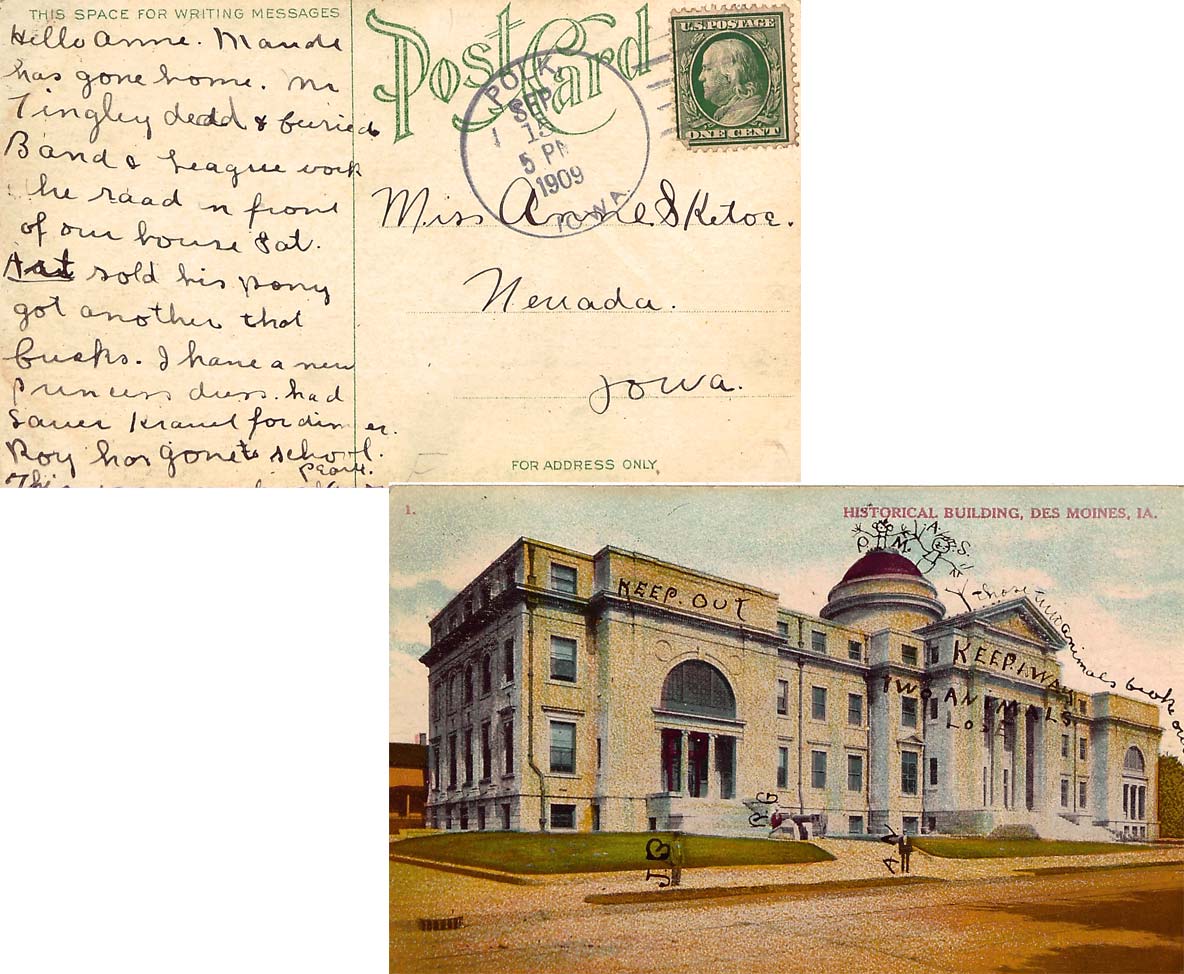 THIS SPACE FOR WRITING MESSAGES
Hello Anne. Maude
has gone home. Mr
Tingley dedd & buried
Band & League work
he road n front
of our house Sat.
Art sold his pony
got another that
bucks. I have a new
princess dress. had
Sauer Kraut for dinner.
Roy has gone to school.
Pearl.
This
Post Card
POLK,
SEP
15
5 PM
1909
IOWA.
U.S. POSTAGE
ONE CENT
Miss Anne Sketoe.
Nevada.
Iowa.
FOR ADDRESS ONLY
1.
HISTORICAL BUILDING, DES MOINES, IA.
P. M.
A. S.
those two animals broke out
KEEP. OUT
KEEP. AWAY
TWO ANEMALS
LOSE
J B
A